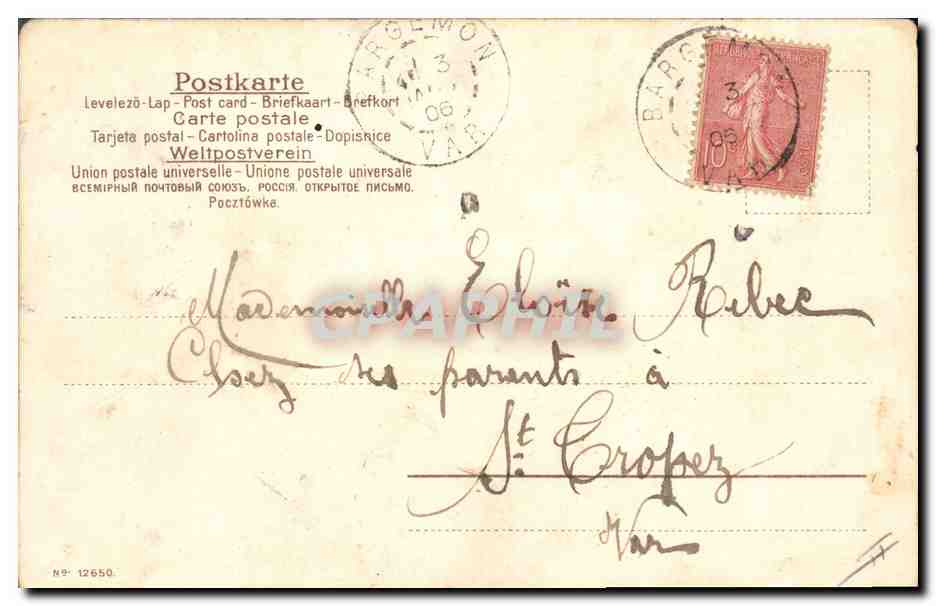 Postkarte
Levelező-Lap - Post card - Briefkaart - Brefkort
Carte postale
Tarjeta postal - Cartolina postale - Dopisnice
Weltpostverein
Union postale universelle - Unione postale universale
ВСЕМІРНЫЙ ПОЧТОВЫЙ СОЮЗЪ. РОССІЯ. ОТКРЫТОЕ ПИСЬМО.
Pocztówka.
BARGEMON
3
06
VAR
BARGEM
3
06
VAR
10
CPAPHIL
Mademoiselle Éloïse Ribec
Chez ses parents à
St. Tropez
Var
No. 12650.